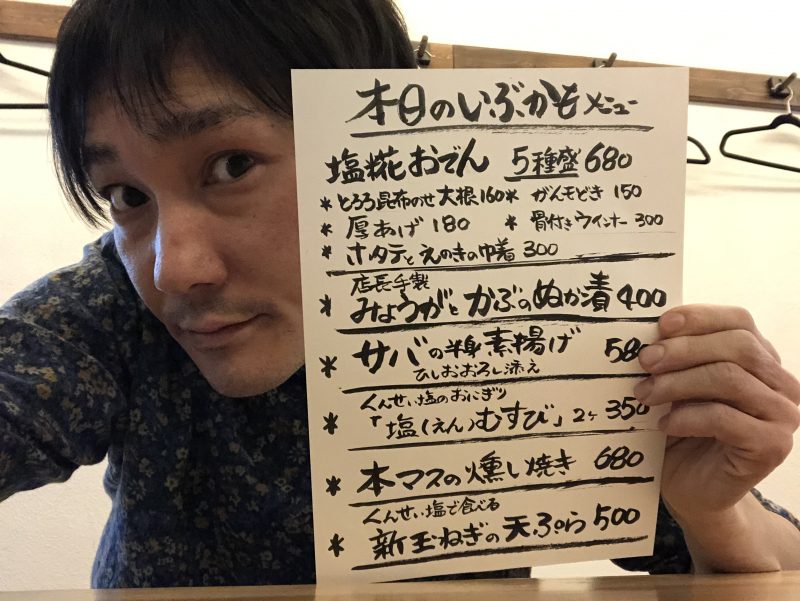 本日のいぶかもメニュー
塩糀おでん 5種盛680
*とろろ昆布のせ大根160 * がんもどき 150
* 厚あげ 180 * 骨付きウインナー 300
* ホタテとえのきの巾着 300
店長手製
* みょうがとかぶのぬか漬 400
* サバの半身素揚げ 580
ひしおおろし添え
くんせい塩のおにぎり
* 「塩(えん)むすび」2ケ 350
* 本マスの燻し焼き 680
くんせい塩で食べる
* 新玉ねぎの天ぷら 500